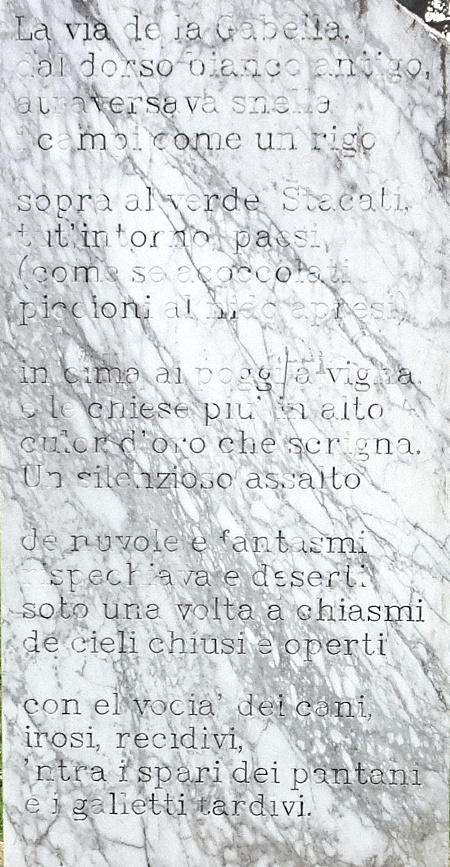 La via de la Gabella,
dal dorso bianco antigo,
attraversava snella
i campi come un rigo
sopra al verde. Stacati,
tut'intorno, paesi,
(come se acoccolati
piccioni al nido apresi)
in cima ai poggi a vigna,
e le chiese piu' in alto
culor d'oro che scrigna.
Un silenzioso assalto
de nuvole e fantasmi
rispechiava e deserti
soto una volta a chiasmi
de cieli chiusi e operti
con el vocia' dei cani,
irosi, recidivi,
'ntra i spari dei pantani
e i galletti tardivi.